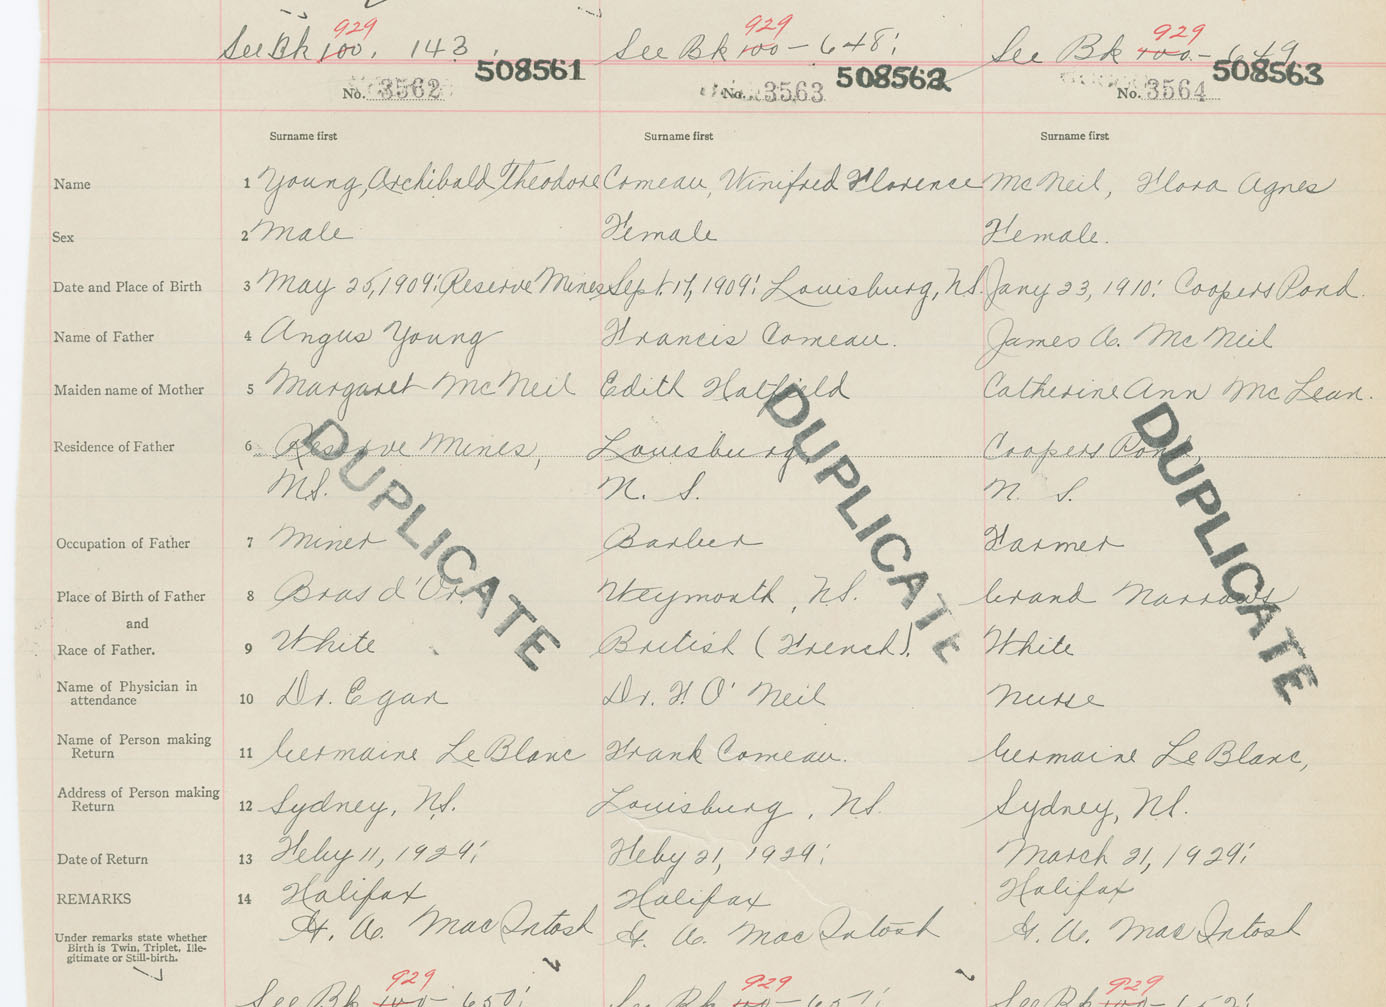 929 929 929
See Bk 100, 143, See Bk 100 - 648; See Bk 100 - 649
508561 508562 508563
No. 3562 No. 3563 No. 3564
Surname first Surname first Surname first
Name 1 Young, Archibald Theodore Comeau, Winifred Florence McNeil, Flora Agnes
Sex 2 Male Female Female.
Date and Place of Birth 3 May 25, 1909; Reserve Mines Sept. 17, 1909; Louisburg, N.S. Jany 23, 1910; Coopers Pond.
Name of Father 4 Angus Young Francis Comeau. James A. McNeil
Maiden name of Mother 5 Margaret McNeil Edith Hatfield Catherine Ann McLean.
Residence of Father 6 Reserve Mines, Louisburg Coopers Pond,
N.S. N. S. N. S.
Occupation of Father 7 Miner Barber Farmer
Place of Birth of Father 8 Bras d'Or. Weymouth, N.S. Grand Narrows
and
Race of Father. 9 White British (French). White
Name of Physician in
attendance 10 Dr. Egan Dr. F. O'Neil Nurse
Name of Person making
Return 11 Germaine LeBlanc Frank Comeau. Germaine LeBlanc,
Address of Person making
Return 12 Sydney, N.S. Louisburg, N.S. Sydney, N.S.
Date of Return 13 Feby 11, 1929; Feby 21, 1929; March 21, 1929;
REMARKS 14 Halifax Halifax Halifax
G. A. MacIntosh G. A. MacIntosh G. A. MacIntosh
Under remarks state whether
Birth is Twin, Triplet, Ille-
gitimate or Still-birth.
DUPLICATE DUPLICATE DUPLICATE
929 929 929
See Bk 100 - 650; See Bk 100 - 651; See Bk 100 - 652;